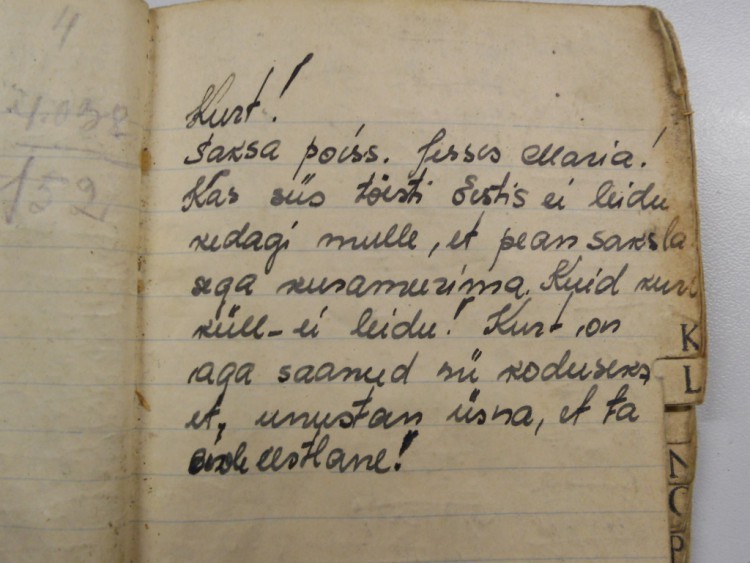 4
152
Kurt!
Saksa poiss. Jessus Maria!
Kas siis tõesti Eestis ei leidu
kedagi mulle, et pean saksla
sega kurameerima. Kuid kuri
küll - ei leidu! Kurt, on
aga saanud nii koduseks
et, unustan üsna, et ta
eestlane!
K
L